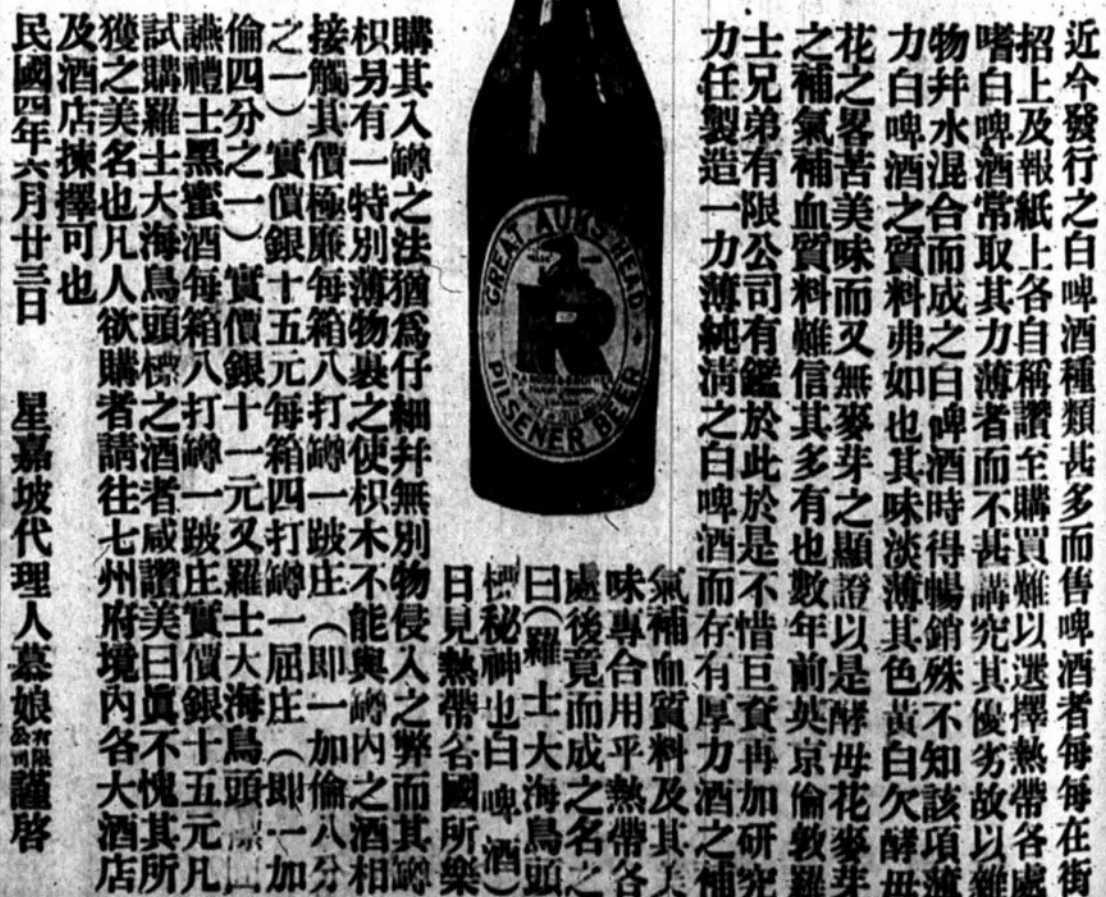 近今發行之白啤酒種類甚多而售啤酒者每每在街
招上及報紙上各自稱讚至購買難以選擇熱帶各處
嗜白啤酒常取其力薄者而不甚講究其優劣故以雜
物幷水混合而成之白啤酒時得暢銷殊不知該項薄
力白啤酒之質料弗如也其味淡薄其色黃白欠酵毋
花之畧苦美味而又無麥芽之顯證以是酵毋花麥芽
之補氣補血質料難信其多有也數年前英京倫敦羅
士兄弟有限公司有鑑於此於是不惜巨資再加研究
力任製造一力薄純淸之白啤酒而存有厚力酒之補
氣補血質料及其美
味專合用乎熱帶各
處後竟而成之名之
曰(羅士大海鳥頭
標秘神也白啤酒)
日見熱帶各國所樂
GREAT AUK'S HEAD
R
PILSENER BEER
購其入罇之法猶爲仔細幷無別物侵入之弊而其罇
枳另有一特別薄物裹之使枳木不能與罇內之酒相
接觸其價極廉每箱八打罇一跛庄(即一加倫八分
之一)實價銀十五元每箱四打罇一屈庄(即一加
倫四分之一)實價銀十一元又羅士大海鳥頭
讌禮士黑蜜酒每箱八打罇一跛庄實價銀十五元凡
試購羅士大海鳥頭標之酒者咸讚美曰眞不愧其所
獲之美名也凡人欲購者請往七州府境內各大酒店
及酒店揀擇可也
民國四年六月廿三日 星嘉坡代理人慕娘有限公司謹啓